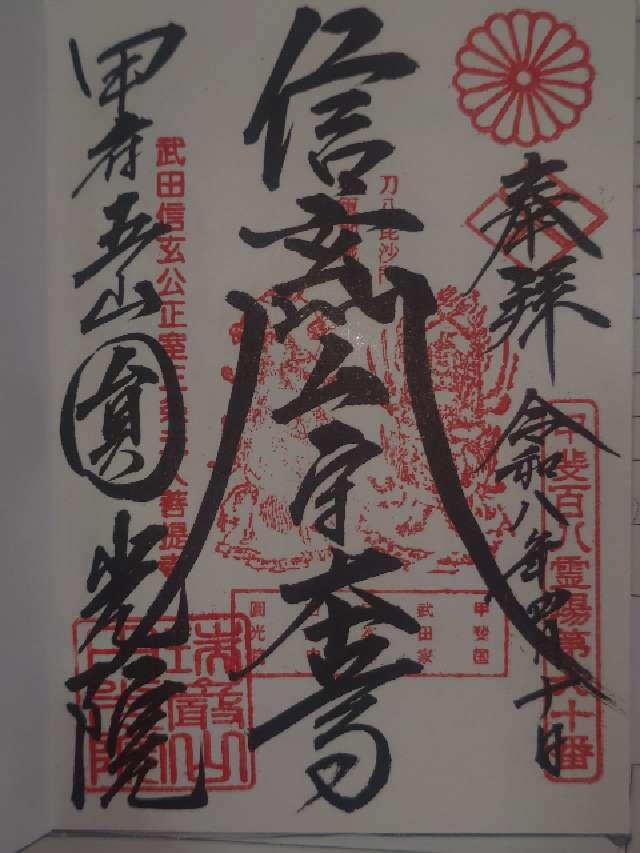 奉拝
令和八年四月十日
甲斐百八霊場第六十番
刀八毘沙門
信玄公守本尊
甲斐国
武田家
圓光
武田信玄公正室三条夫人菩提寺
甲府五山圓光院